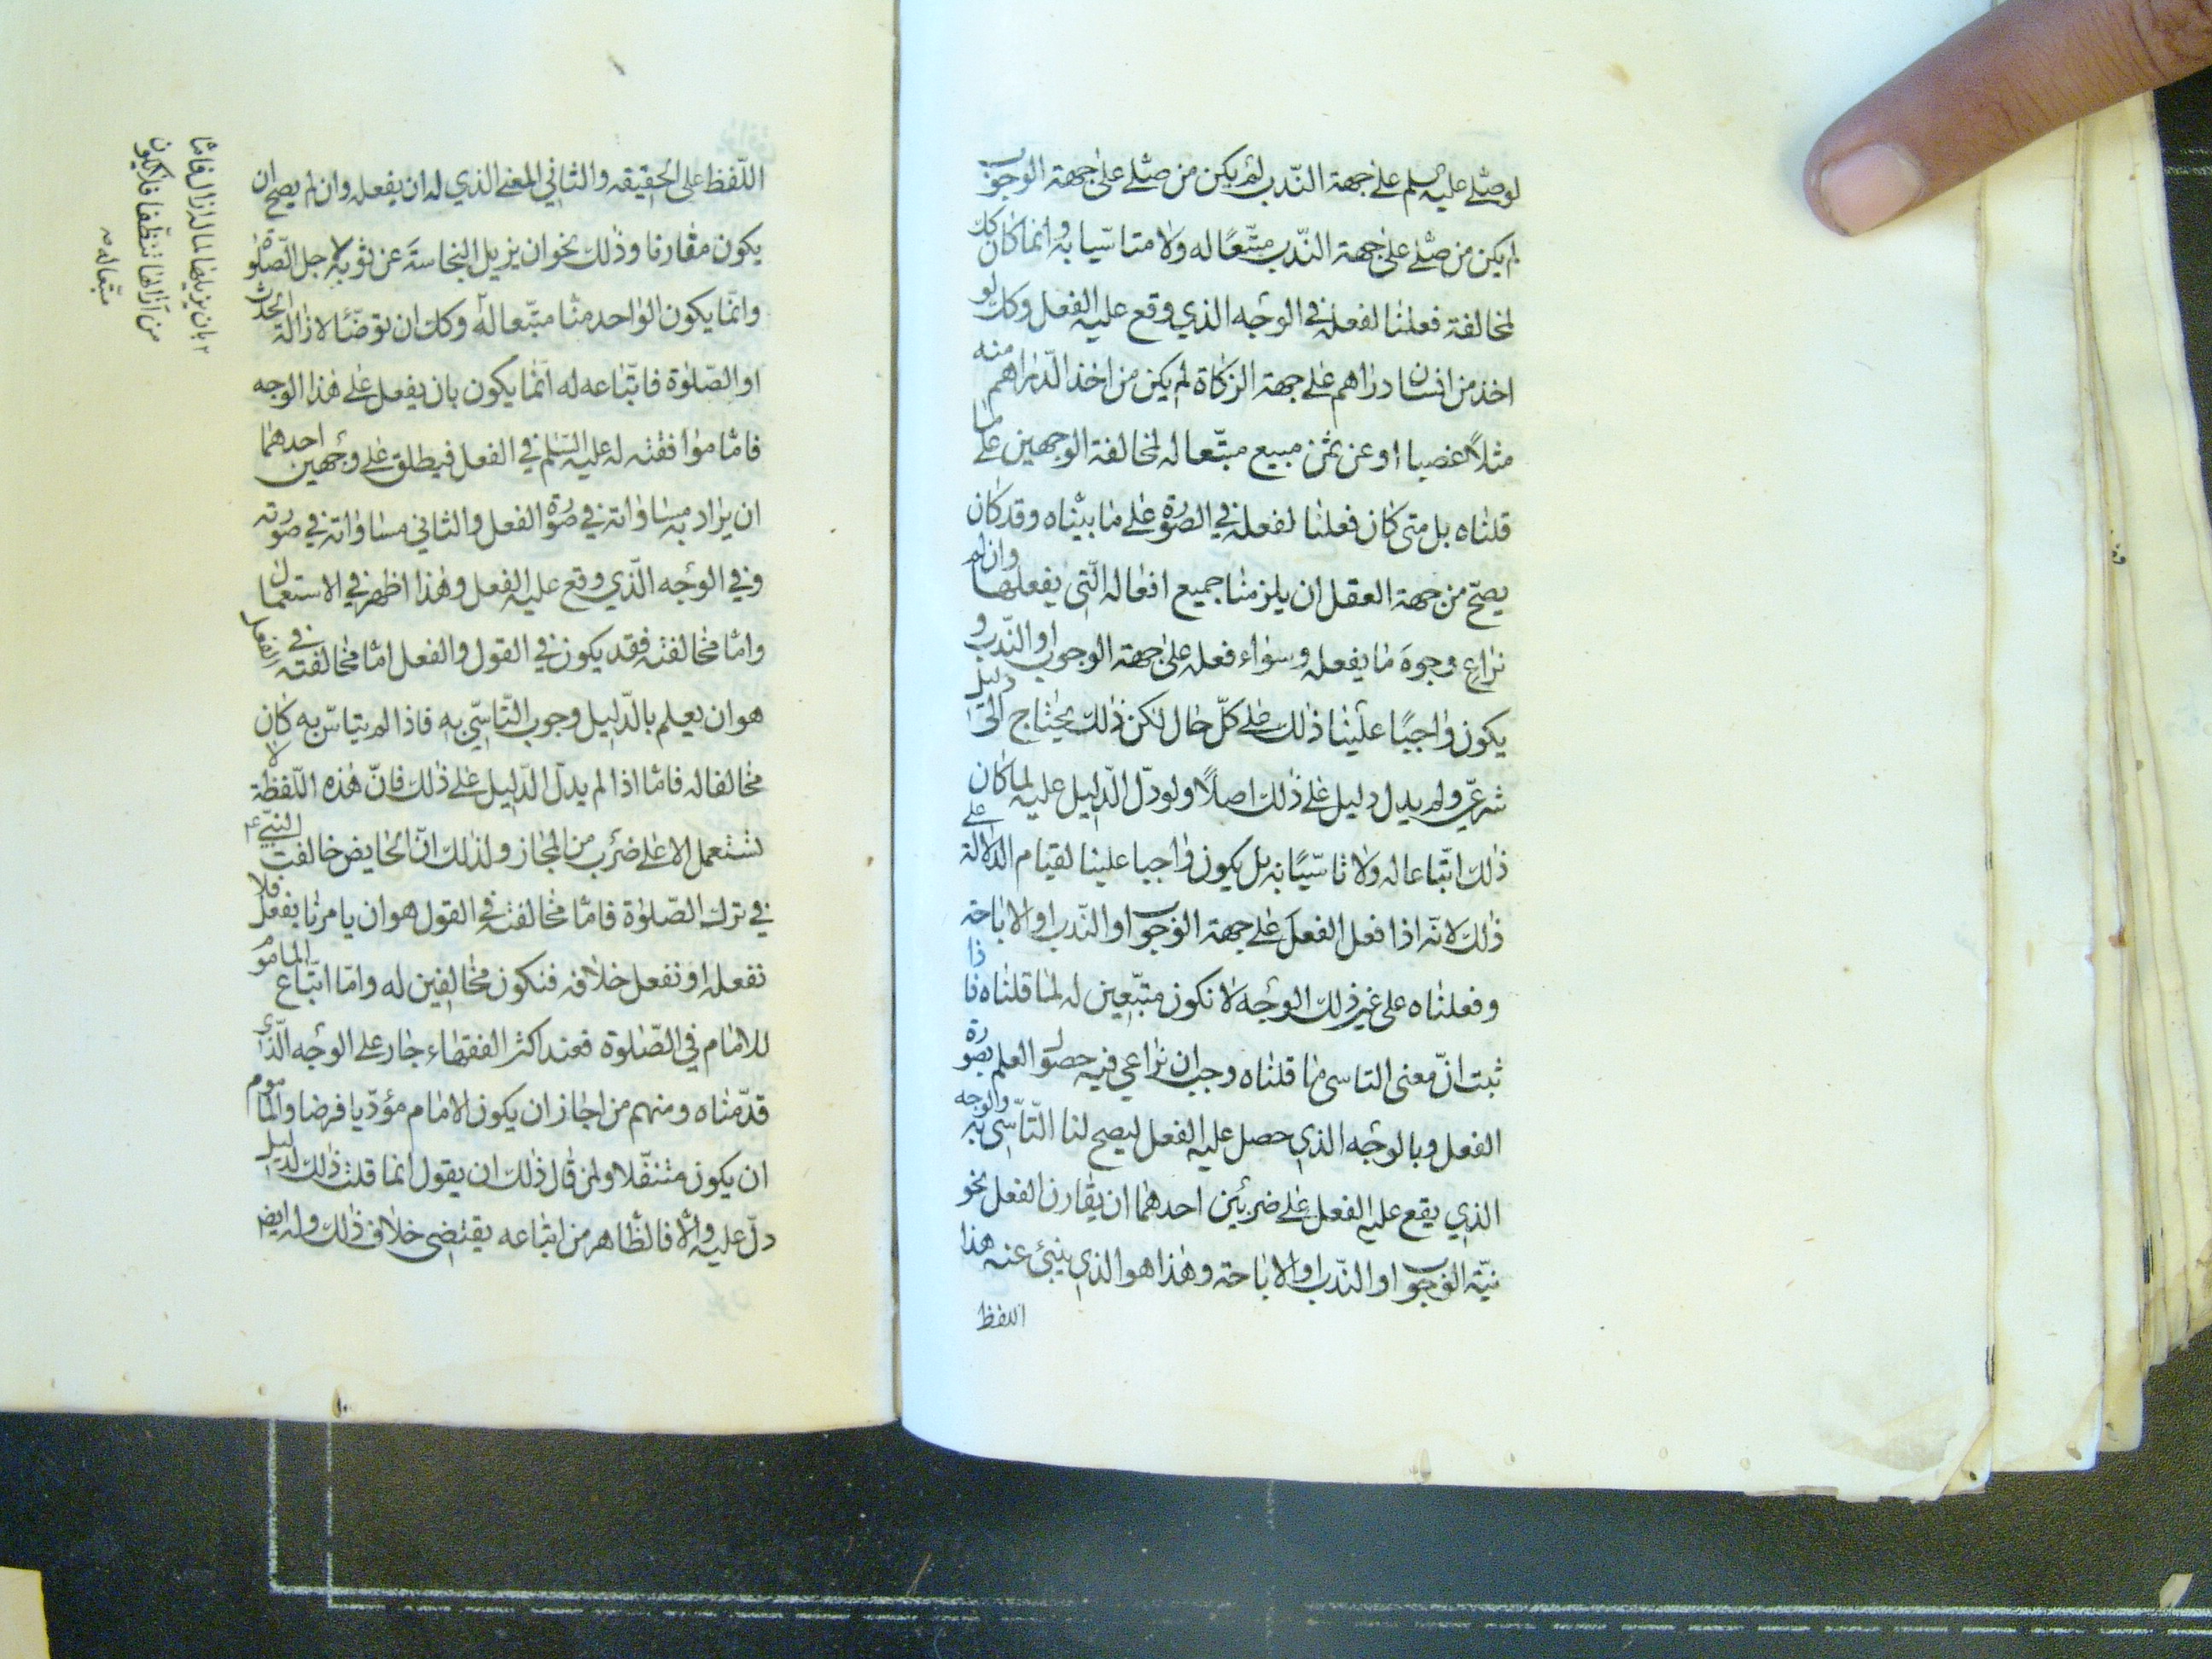 لو صلى عليه السلم على جهة الندب لم يكن من صلى على جهة الوجوب
لم يكن من صلى على جهة الندب متبعا له ولا متاسيا به وانما كان كك
لمخالفة فعلنا لفعله في الوجه الذي وقع عليه الفعل وكك لو
اخذ من انسان دراهم على جهة الزكاة لم يكن من اخذ الدراهم منه
مثلا غصبا او عن ثمن مبيع متبعا له لمخالفة الوجهين على ما
قلناه بل متى كان فعلنا لفعله في الصورة على ما بيناه وقد كان
يصح من جهة العقل ان يلزمنا جميع افعاله التي يفعلها وان لم
نراع وجوه ما يفعله وسواء فعله على جهة الوجوب او الندب و
يكون واجبا علينا ذلك على كل حال لكن ذلك يحتاج الى دليل
شرعي ولم يدل دليل على ذلك اصلا ولو دل الدليل عليه لما كان
ذلك اتباعا له ولا تاسيا به بل يكون واجبا علينا لقيام الدلالة على
ذلك لانه اذا فعل الفعل على جهة الوجوب او الندب او الاباحة
وفعلناه على غير ذلك الوجه لا نكون متبعين له لما قلناه فاذا
ثبت ان معنى التاسي ما قلناه وجب ان نراعي فيه حصول العلم بصورة
الفعل وبالوجه الذي حصل عليه الفعل ليصح لنا التاسي به والوجه
الذي يقع عليه الفعل على ضربين احدهما ان يقارن الفعل نحو
نية الوجوب او الندب او الاباحة وهذا هو الذي ينبئ عنه هذا
اللفظ
اللفظ على الحقيقه والثاني المعنى الذي له ان يفعله وان لم يصح ان
يكون مقارنا وذلك نحو ان يزيل النجاسة عن ثوبه لاجل الصلوة
وانما يكون الواحد منا متبعا له وكك ان توضأ لازالة الحدث
او الصلوة فاتباعه له انما يكون بان يفعل على هذا الوجه
فاما موافقته له عليه السلم في الفعل فيطلق على وجهين احدهما
ان يراد به مساواته في صورة الفعل والثاني مساواته في صورته
وفي الوجه الذي وقع عليه الفعل وهذا اظهر في الاستعمال
واما مخالفته فقد يكون في القول والفعل اما مخالفته في الفعل
هو ان يعلم بالدليل وجوب التاسي به فاذا لم يتاس به كان
مخالفا له فاما اذا لم يدل الدليل على ذلك فان هذه اللفظة لا
تستعمل الا على ضرب من المجاز ولذلك ان الحايض خالفت النبي ع
في ترك الصلوة فاما مخالفته في القول هو ان يامرنا بفعل فلا
نفعله او نفعل خلافه فنكون مخالفين له واما اتباع المامو
للامام في الصلوة فعند اكثر الفقهاء جار على الوجه الذي
قدمناه ومنهم من اجاز ان يكون الامام مؤديا فرضا والماموم
ان يكون متنفلا ولمن قال ذلك ان يقول انما قلت ذلك لدليل
دل عليه والا فالظاهر من اتباعه يقتضي خلاف ذلك وله ايض
٢ بان يزيلها لما له ازال فاما
من ازالها تنظفا فلا يكون
متبعا له صح